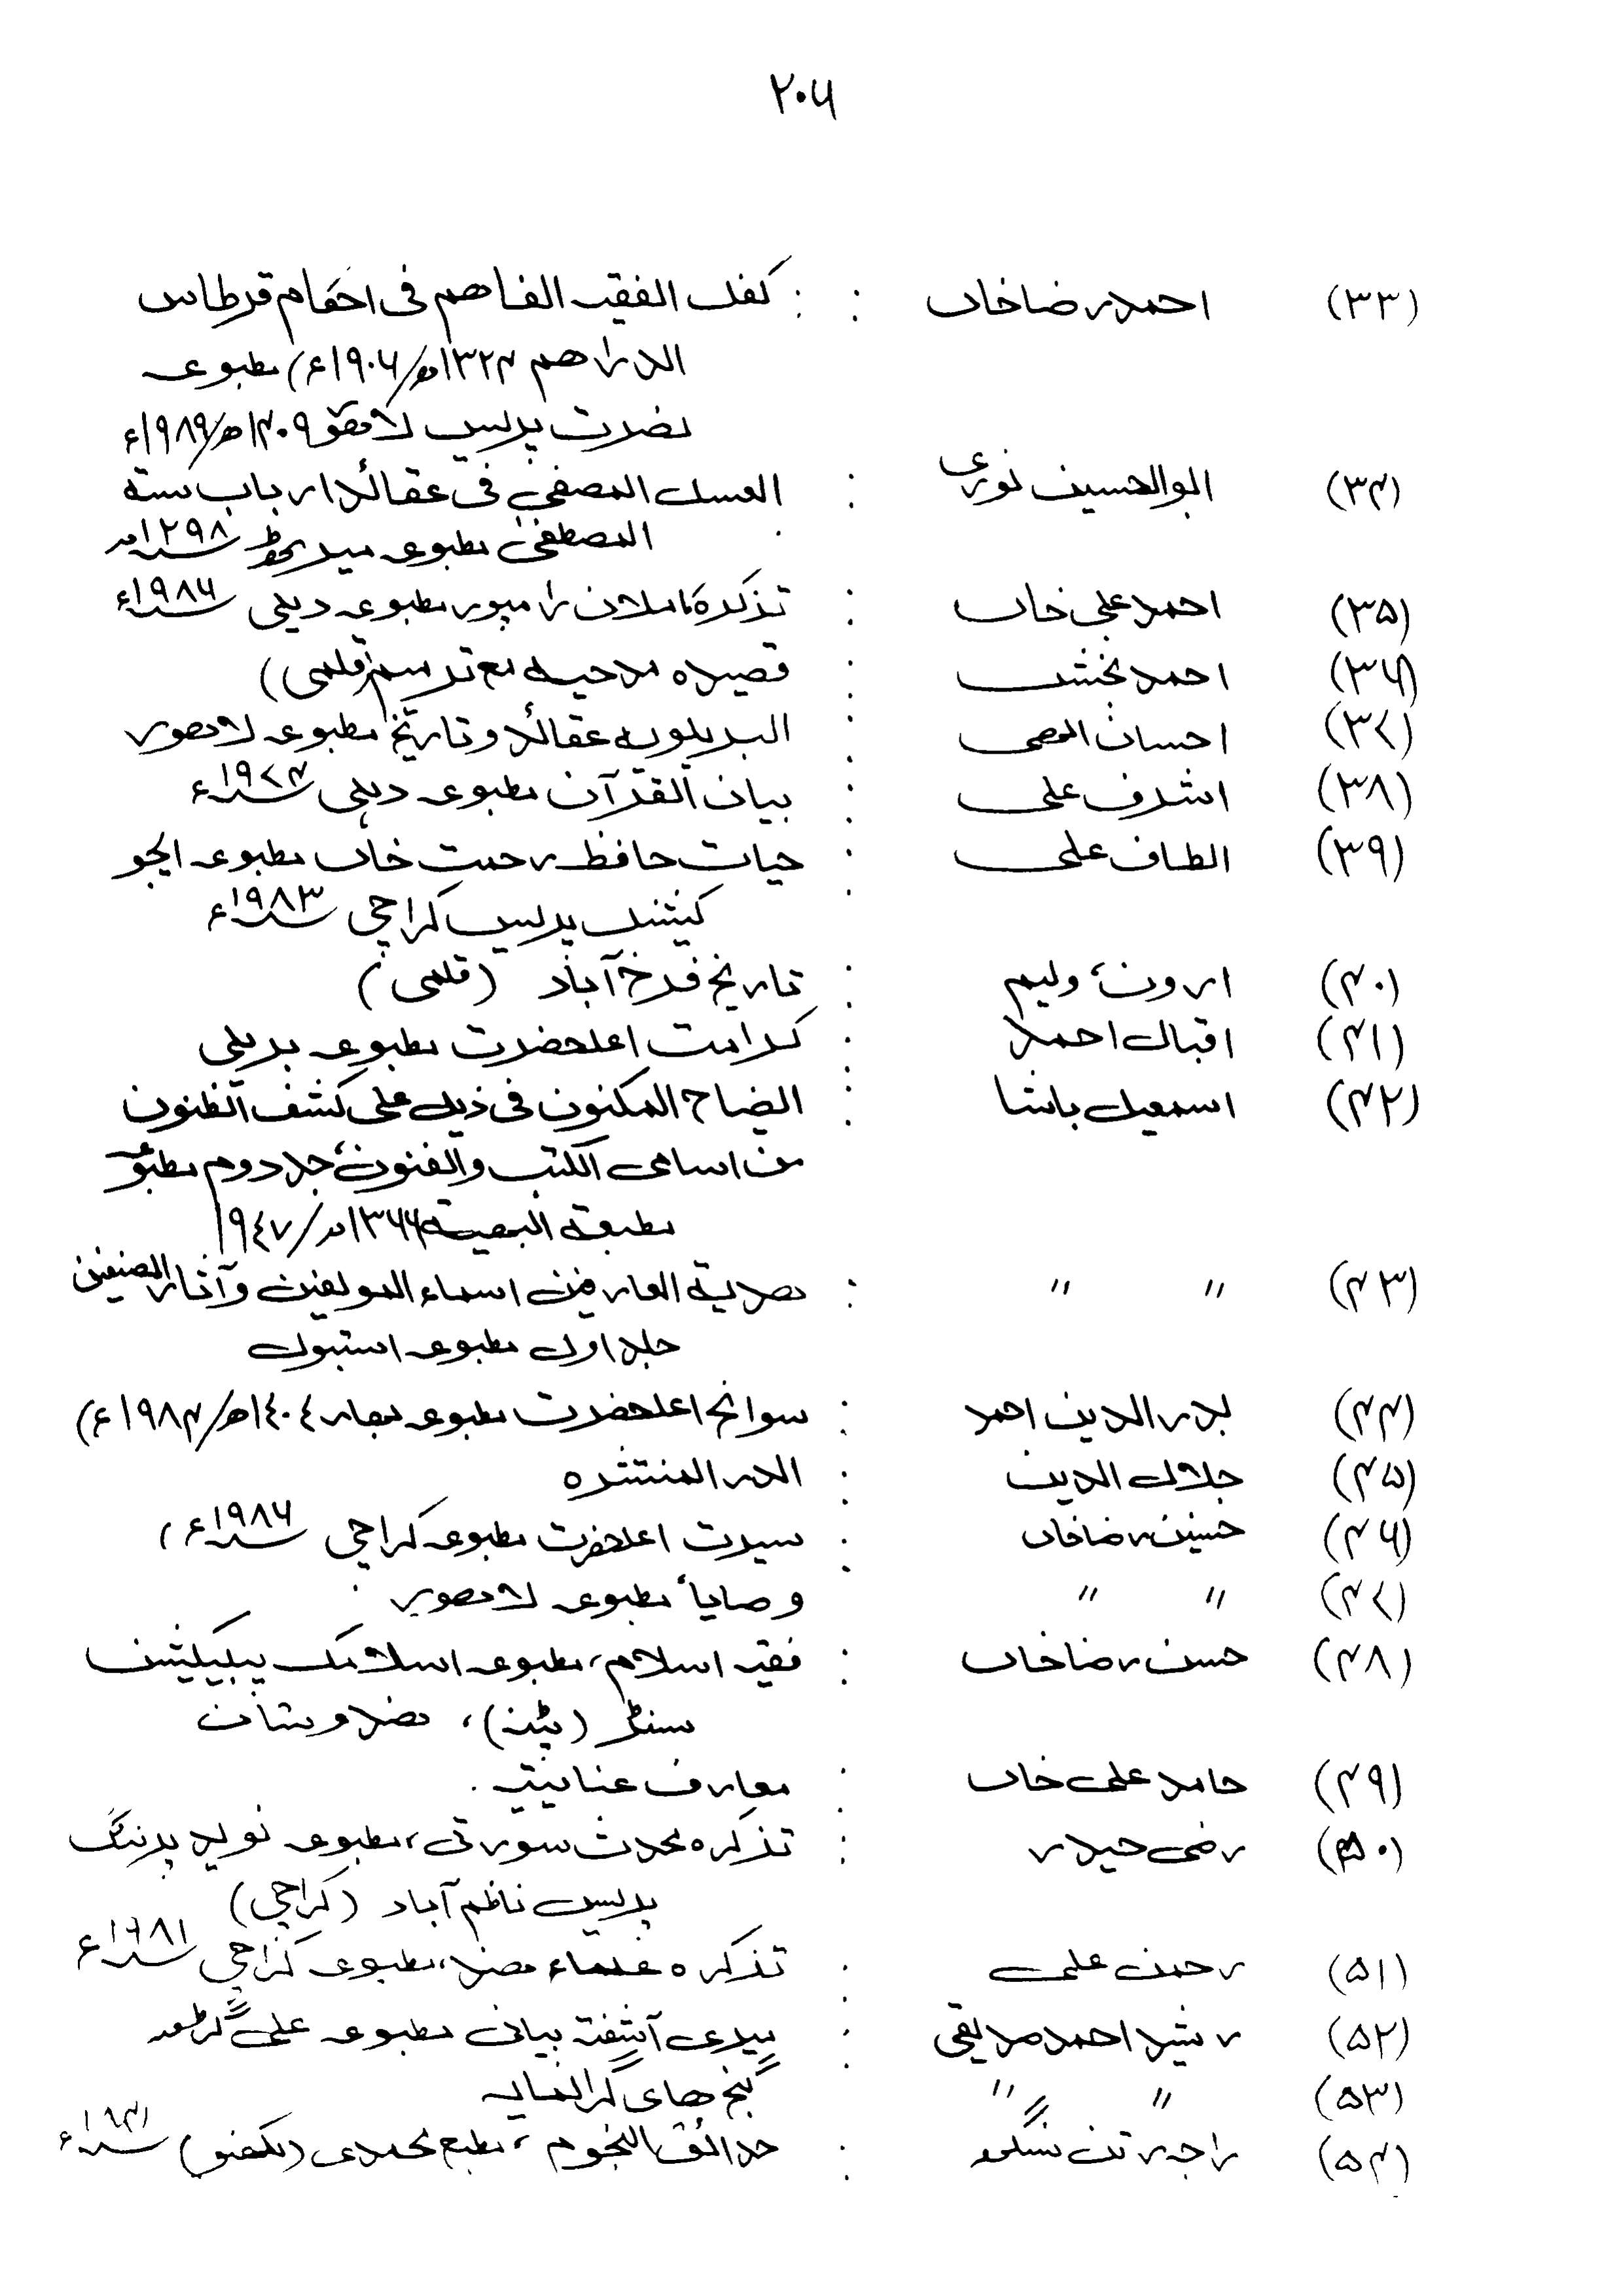 ۲۰۶
(۳۳) احمد رضا خاں : کفل الفقیہ الفاھم فی احکام قرطاس
الدراھم ۱۳۲۴ھ/۱۹۰۶ء) مطبوعہ
نصرت پریس لاھور ۱۴۰۹ھ/۱۹۸۹ء
(۳۴) ابوالحسین نوری : العسل المصفیٰ فی عقائد ارباب سنۃ
المصطفیٰ مطبوعہ میرٹھ سنہ ۱۲۹۸ھ
(۳۵) احمد علی خاں : تذکرہ کاملان رامپور مطبوعہ دہلی سنہ ۱۹۸۶ء
(۳۶) احمد بخش : قصیدہ مدحیہ مع ترسیم (قلمی)
(۳۷) احسان الٰھی : البریلویہ عقائد و تاریخ مطبوعہ لاھور
(۳۸) اشرف علی : بیان القرآن مطبوعہ دہلی سنہ ۱۹۷۴ء
(۳۹) الطاف علی : حیات حافظ رحمت خاں مطبوعہ ایجو
کیشنل پریس کراچی سنہ ۱۹۸۳ء
(۴۰) ارون، ولیم : تاریخ فرخ آباد (قلمی)
(۴۱) اقبال احمد : کرامت اعلحضرت مطبوعہ بریلی
(۴۲) اسمعیل باشا : ایضاح المکنون فی ذیل علی کشف الظنون
من اسامی الکتب والفنون، جلد دوم مطبوعہ
مطبعۃ البھیۃ ۱۳۶۶ھ/۱۹٤۷
(۴۳) ״ ״ : ھدیۃ العارفین اسماء المولفین و آثار المصنفین
جلد اول مطبوعہ استنبول
(۴۴) بدر الدین احمد : سوانح اعلحضرت مطبوعہ بہار ۱٤۰٤ھ/۱۹۸۴ء)
(۴۵) جلال الدین : الدر المنتشرہ
(۴۶) حسنین رضا خاں : سیرت اعلحضرت مطبوعہ کراچی سنہ ۱۹۸۶ء،
(۴۷) ״ ״ وصایا، مطبوعہ لاھور
(۴۸) حسن رضا خاں : فقیہ اسلام، مطبوعہ اسلامک پبلیکیشن
سنٹر (پٹنہ)، ھندوستان
(۴۹) حامد علی خاں : معارف عنایتیہ
(۵۰) رضی حیدر : تذکرہ محدث سورتی، مطبوعہ نوید پرنٹنگ
پریس ناظم آباد (کراچی)
(۵۱) رحمن علی : تذکرہ علماء ھند، مطبوعہ کراچی سنہ ۱۹۸۱ء
(۵۲) رشید احمد صدیقی : میری آشفتہ بیانی مطبوعہ علی گڑھ
(۵۳) ״ ״ گنج ھای گرانمایہ
(۵۴) راجہ رتن سنگھ : حدائق النجوم، مطبع محمدی (لکھنو) سنہ ء